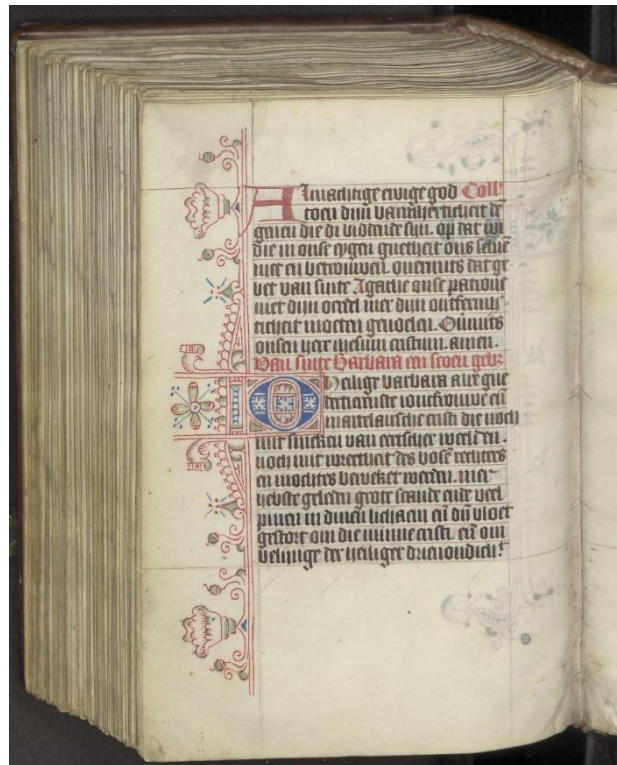 Almachtige ewige god Coll'
toen dijn barmhertichēit dē
genen die di biddende sijn. op dat wi
die in onse eygen guetheit ons seluē
niet en betrouwen. ouermits dat ge
bet van sinte Agathe onse patrone
niet dijn ordel mer dijn ontfermh
ticheit moeten geuoelen. Ouermits
onsen here ihesum cristum. amen.
Van sinte Barbara een scoen geb
O Heilige barbara alre gue
dertierenste ioncfrouwe eñ
martelaersche cristi die noch
mit smeken van eertscher weelden.
noch mit wreetheit des bosē rechters
en mochtes beweket werden. mer
liebste geleden grote scande ende veel
pinen in dinen lichaem eñ dijn bloet
gestort om die minne cristi. eñ om
belijnge der heiliger drieuoudich